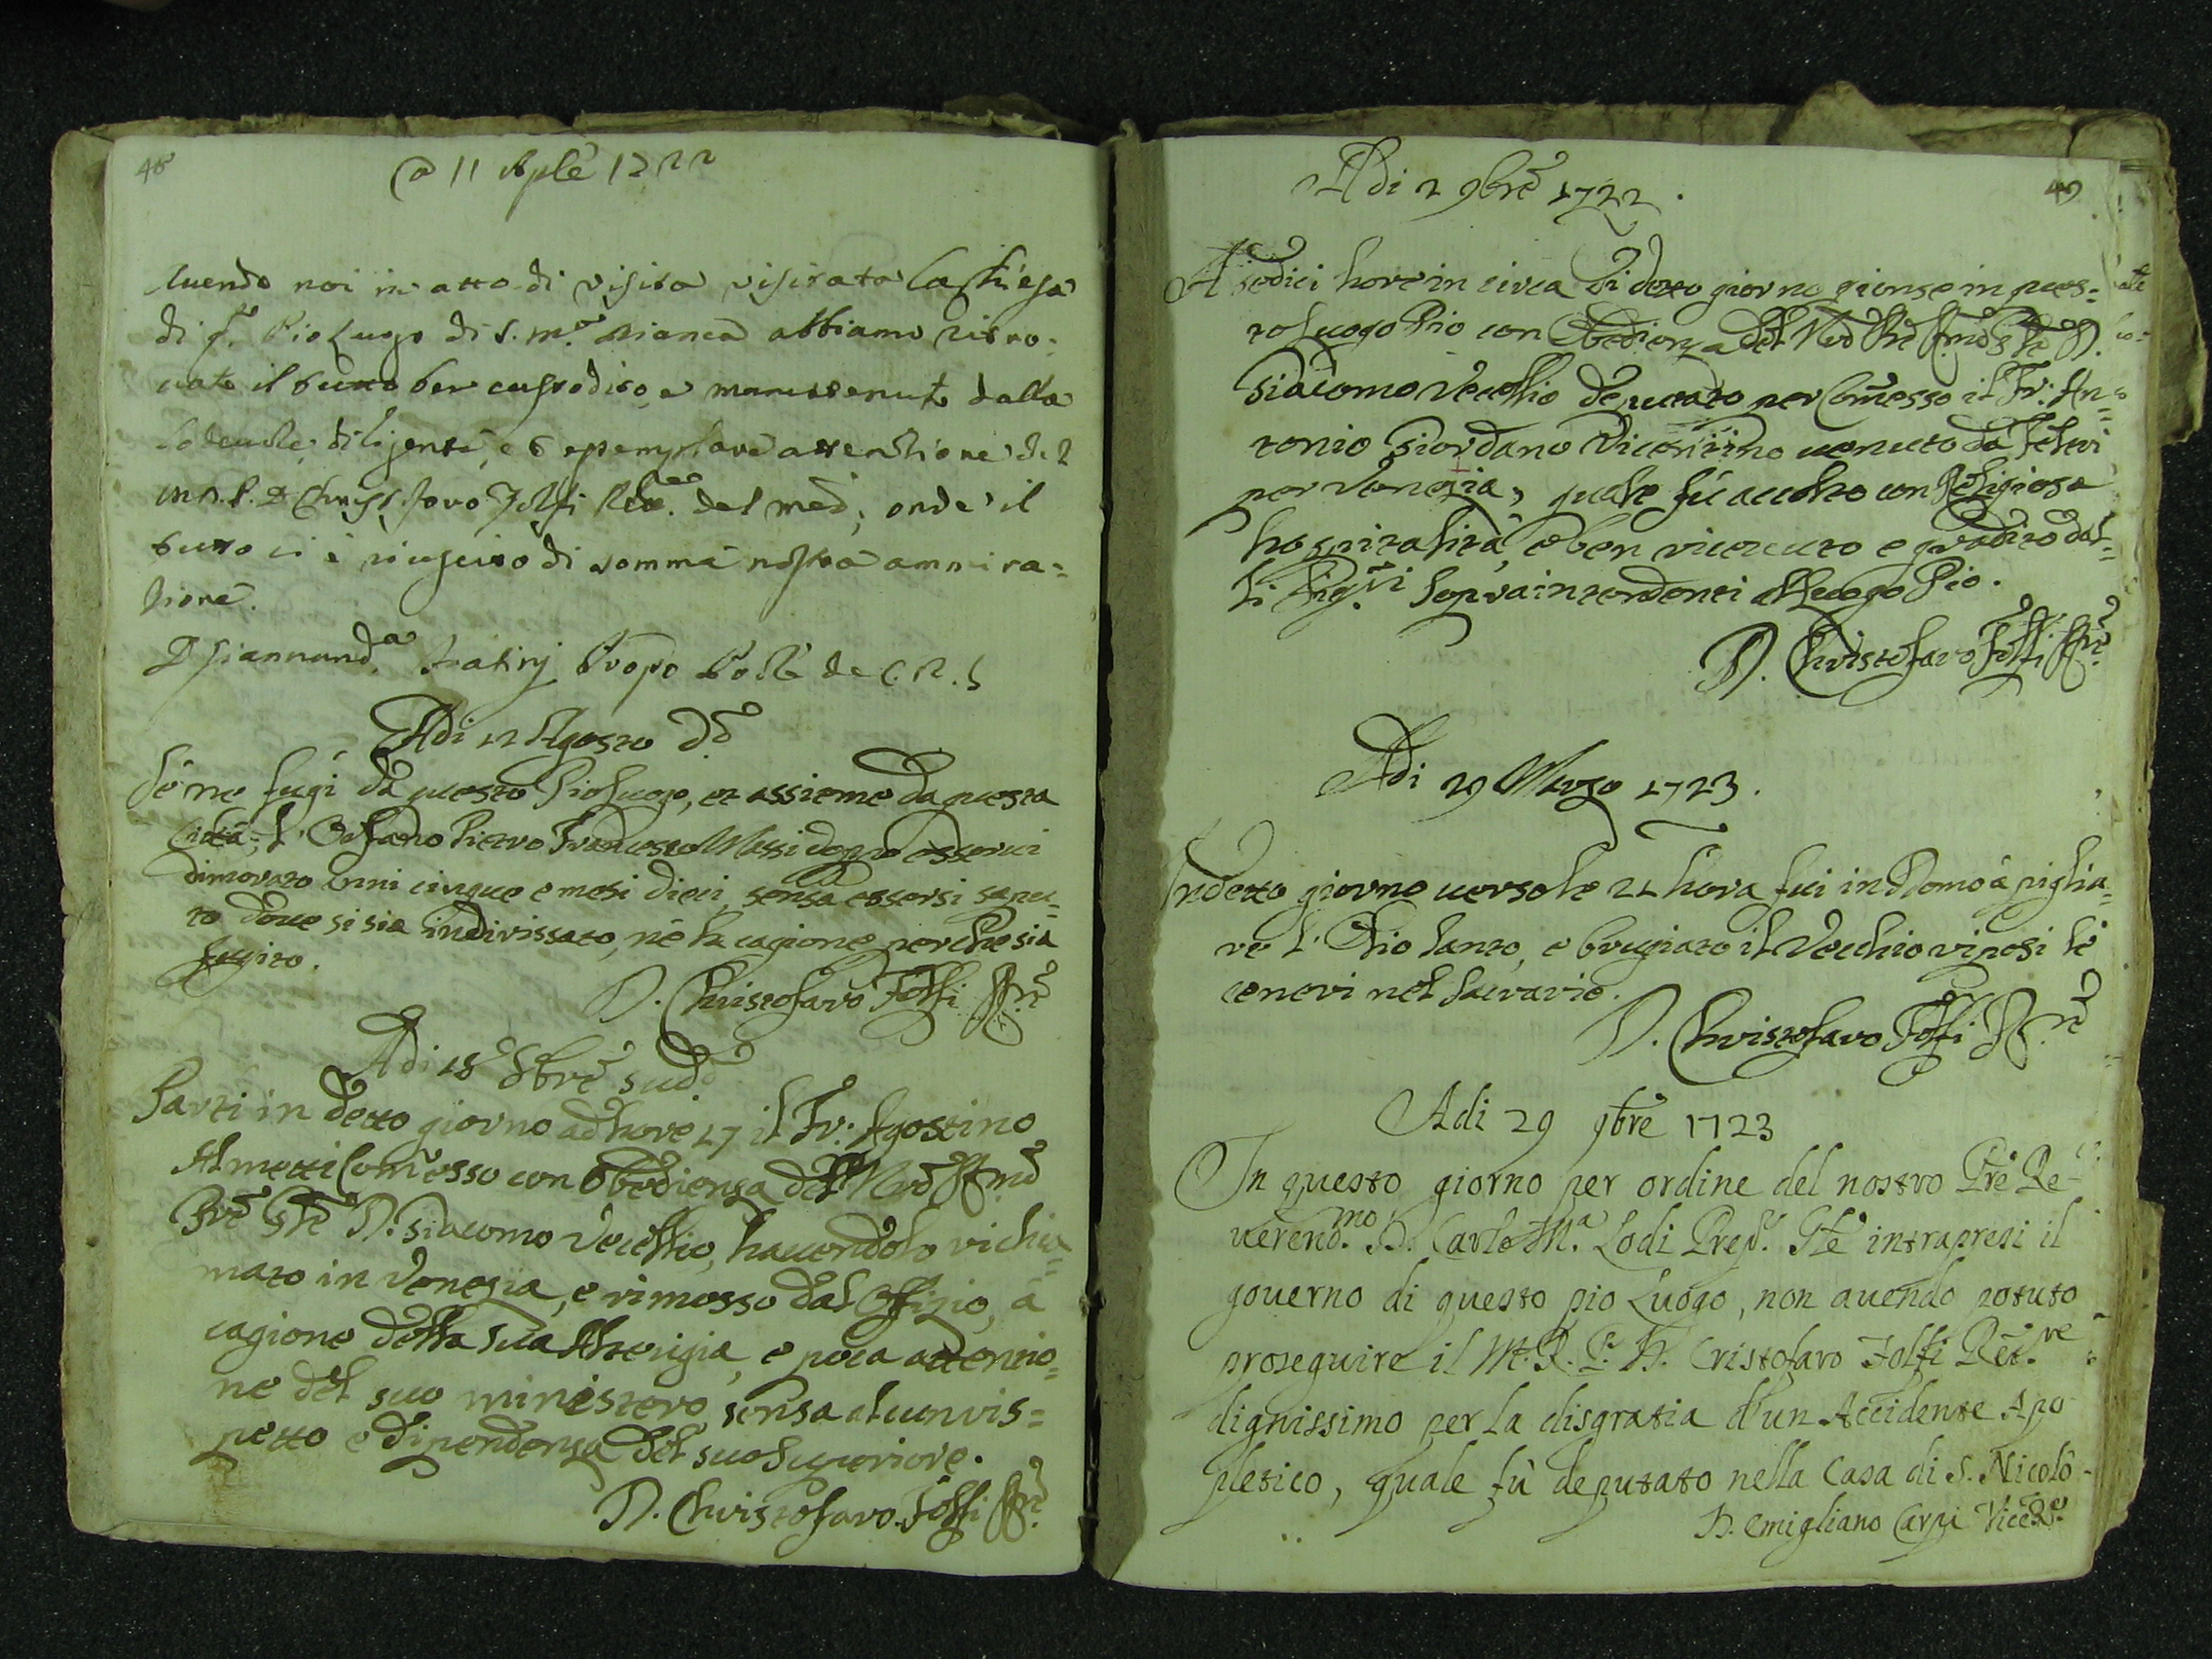 48
@ 11 Aple 1722
Auendo noi in atto di visita visitata la Chiesa
di q.o Pio Luogo di S. M.a Bianca abbiamo ritro=
uato il tutto ben custodito, e mantenuto dalla
lodeuole, diligente, e esemplare attentione del
M.R.P. D. Christoforo Folfi del med.; onde il
tutto ci è riuscito di somma nostra ammira=
tione.
D. Giannand.a Propo de C.R.S
Adi 12 Agosto d.o
Se ne fugi da questo Pio Luogo, et assieme da questa
Città, l'Orfano Pietro Francesco Massi doppo esserui
dimorato anni cinque e mesi dieci, sensa essersi sapu=
to doue si sia indirissato, nè la cagione perche sia
fugito.
D. Christofaro Folfi Rre
Adi 18 8bre sud.o
Parti in detto giorno ad hore 17 il Fr: Agostino
Almetti Comesso con Obbediensa del Red Rmo
Pre Gle D. Giacomo Vecellio, hauendolo richia=
mato in Venesia, e rimosso dal Offizio, à
cagione della sua Alterigia, e poca attentio=
ne del suo ministero, sensa alcun ris=
petto e dipendensa del suo Superiore.
D. Christofaro Folfi Rre
49
Adi 2 9bre 1722.
A sedici hore in circa di detto giorno gionse in ques=
to Luogo Pio con Obediensa del Red Pre Rmo Gle D.
Giacomo Vecellio deputato per Comesso il Fr: An=
tonio Giordano Vicentino uenuto da Feltri
per Venezia, quale fù accolto con Religiosa
hospitalità, e ben riceuuto e gradito dal=
li Sig.ri Sopraintendenti al Luogo Pio.
D. Christofaro Folfi Rre
Adi 29 Marzo 1723.
In detto giorno uerso le 21 hora fui in Domo à piglia=
re l'Olio Santo, e brugiato il Vecchio riposi le
ceneri nel Sacrario.
D. Christofaro Folfi Rre
Adi 29 9bre 1723
In questo giorno per ordine del nostro Pre Re-
uerend.mo D. Carlo M.a Lodi Prep. Gle intrapresi il
gouerno di questo pio Luogo, non auendo potuto
proseguire il M.R.P. D. Cristofaro Folfi Ret.re
dignissimo per la disgratia d'un Accidente Apo-
pletico, quale fù deputato nella Casa di S. Nicolò-
D. Emigliano Carpi ViceRe